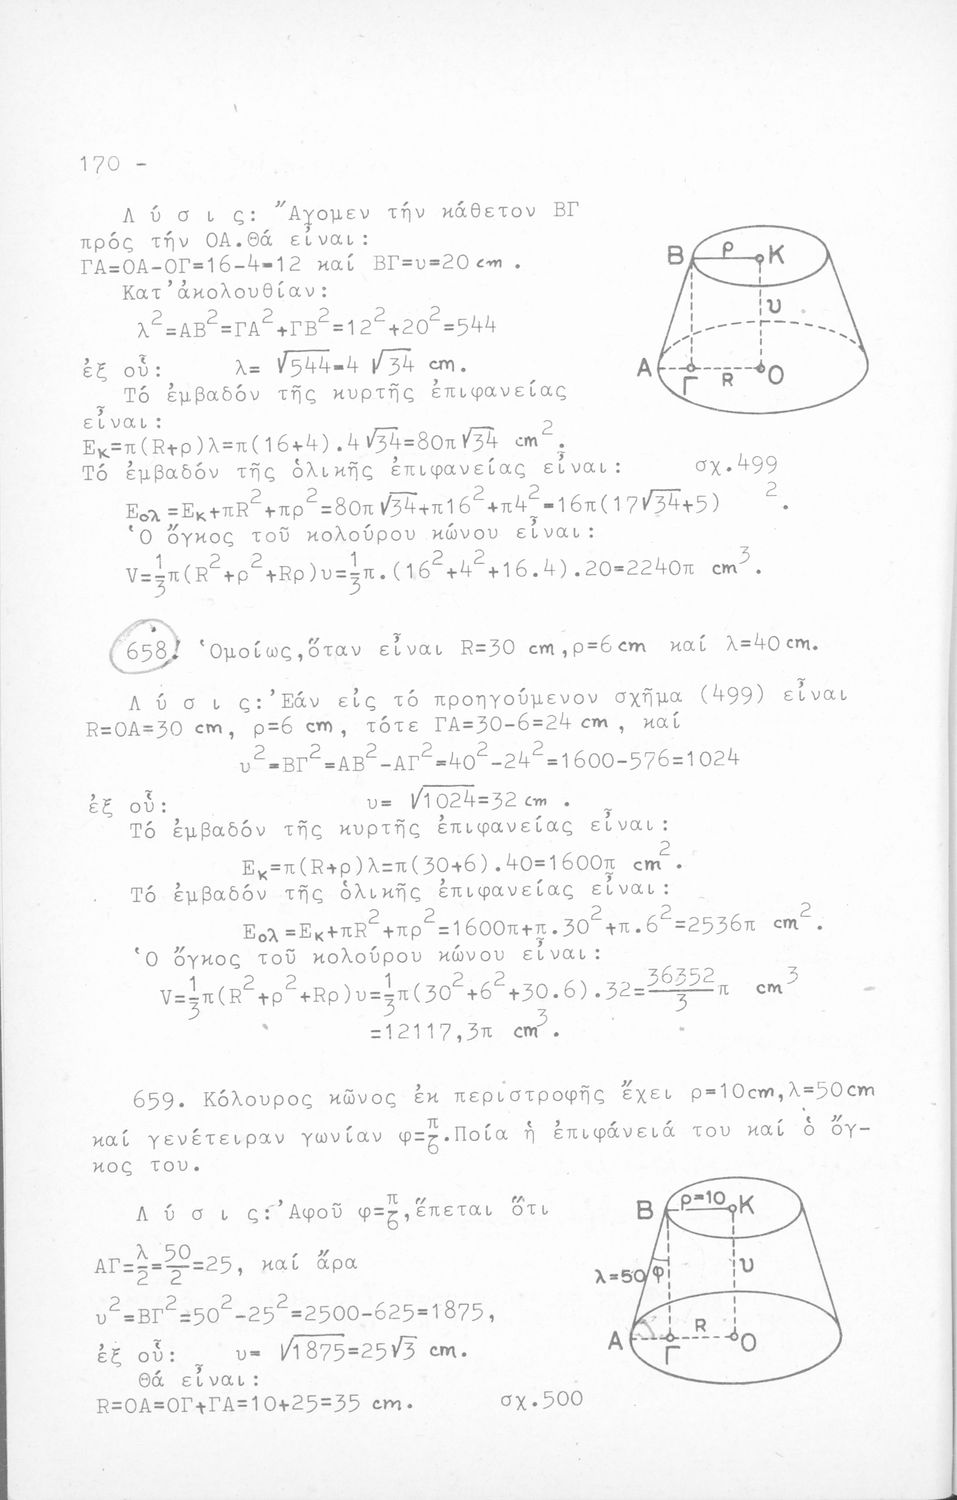 170 -
Λ ύ σ ι ς: Ἄγομεν τήν κάθετον ΒΓ
πρός τήν ΟΑ.Θά εἶναι:
ΓΑ=ΟΑ-ΟΓ=16-4=12 καί ΒΓ=υ=20 cm .
Κατ'ἀκολουθίαν:
λ²=ΑΒ²=ΓΑ²+ΓΒ²=12²+20²=544
ἐξ οὗ: λ= √544=4 √34 cm.
Τό ἐμβαδόν τῆς κυρτῆς ἐπιφανείας
εἶναι:
Εκ=π(R+ρ)λ=π(16+4).4√34=80π√34 cm².
Τό ἐμβαδόν τῆς ὁλικῆς ἐπιφανείας εἶναι:
Εολ=Εκ+πR²+πρ²=80π√34+π16²+π4²=16π(17√34+5) ².
Ὁ ὄγκος τοῦ κολούρου κώνου εἶναι:
V=1/3π(R²+ρ²+Rρ)υ=1/3π.(16²+4²+16.4).20=2240π cm³.
B ρ K
υ
A Γ R O
σχ.499
658. Ὁμοίως,ὅταν εἶναι R=30 cm,ρ=6cm καί λ=40cm.
Λ ύ σ ι ς:Ἐάν εἰς τό προηγούμενον σχῆμα (499) εἶναι
R=ΟΑ=30 cm, ρ=6 cm, τότε ΓΑ=30-6=24 cm , καί
υ²=ΒΓ²=ΑΒ²-ΑΓ²=40²-24²=1600-576=1024
ἐξ οὗ: υ= √1024=32 cm .
Τό ἐμβαδόν τῆς κυρτῆς ἐπιφανείας εἶναι:
Εκ=π(R+ρ)λ=π(30+6).40=1600π cm².
Τό ἐμβαδόν τῆς ὁλικῆς ἐπιφανείας εἶναι:
Εολ=Εκ+πR²+πρ²=1600π+π.30²+π.6²=2536π cm².
Ὁ ὄγκος τοῦ κολούρου κώνου εἶναι:
V=1/3π(R²+ρ²+Rρ)υ=1/3π(30²+6²+30.6).32=36352/3π cm³
=12117,3π cm³.
659. Κόλουρος κῶνος ἐκ περιστροφῆς ἔχει ρ=10cm,λ=50cm
καί γενέτειραν γωνίαν φ=π/6.Ποία ἡ ἐπιφάνειά του καί ὁ ὄγ-
κος του.
Λ ύ σ ι ς:Ἀφοῦ φ=π/6,ἕπεται ὅτι
ΑΓ=λ/2=50/2=25, καί ἄρα
υ²=ΒΓ²=50²-25²=2500-625=1875,
ἐξ οὗ: υ= √1875=25√3 cm.
Θά εἶναι:
R=ΟΑ=ΟΓ+ΓΑ=10+25=35 cm.
B ρ=10 K
λ=50 φ υ
A Γ R O
σχ.500